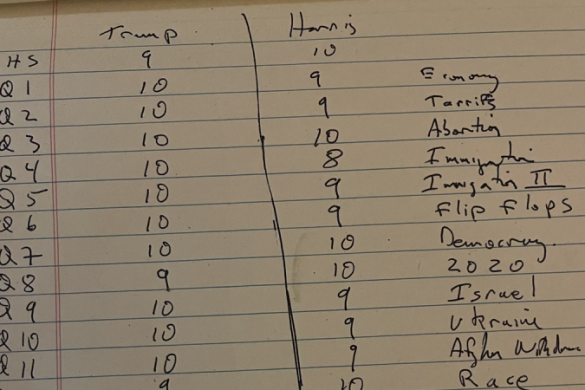 Trump Harris
HS 9 10
Q1 10 9 Economy
Q2 10 9 Tarrifs
Q3 10 10 Abortion
Q4 10 8 Immigration
Q5 10 9 Immigration II
Q6 10 9 flip flops
Q7 10 10 Democracy
Q8 9 10 2020
Q9 10 9 Israel
Q10 10 9 Ukraine
Q11 10 9
9 10 Race